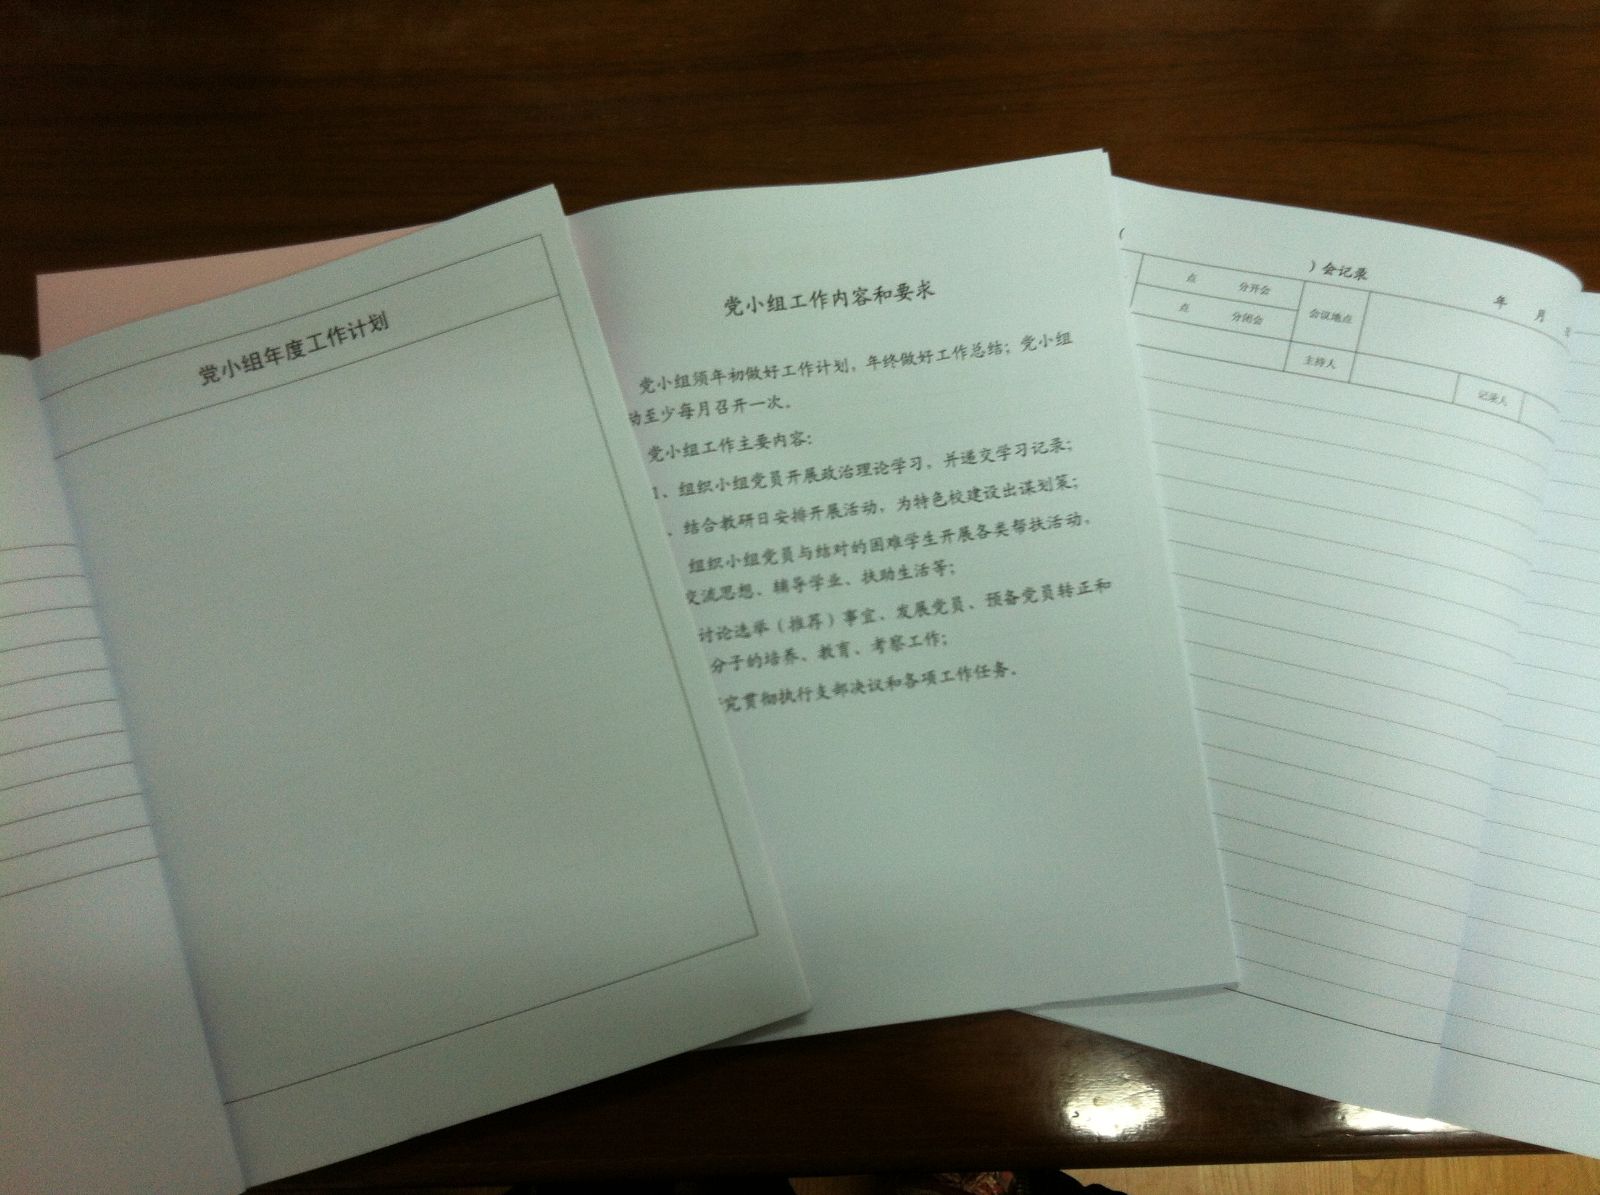 党小组年度工作计划
党小组工作内容和要求
党小组须年初做好工作计划，年终做好工作总结；党小组
动至少每月召开一次。
党小组工作主要内容：
1、组织小组党员开展政治理论学习，并递交学习记录；
、结合教研日安排开展活动，为特色校建设出谋划策；
组织小组党员与结对的困难学生开展各类帮扶活动，
交流思想、辅导学业、扶助生活等；
讨论选举（推荐）事宜、发展党员、预备党员转正和
分子的培养、教育、考察工作；
究贯彻执行支部决议和各项工作任务。
（ ）会记录
年 月
点 分开会 会议地点
点 分闭会
主持人 记录人